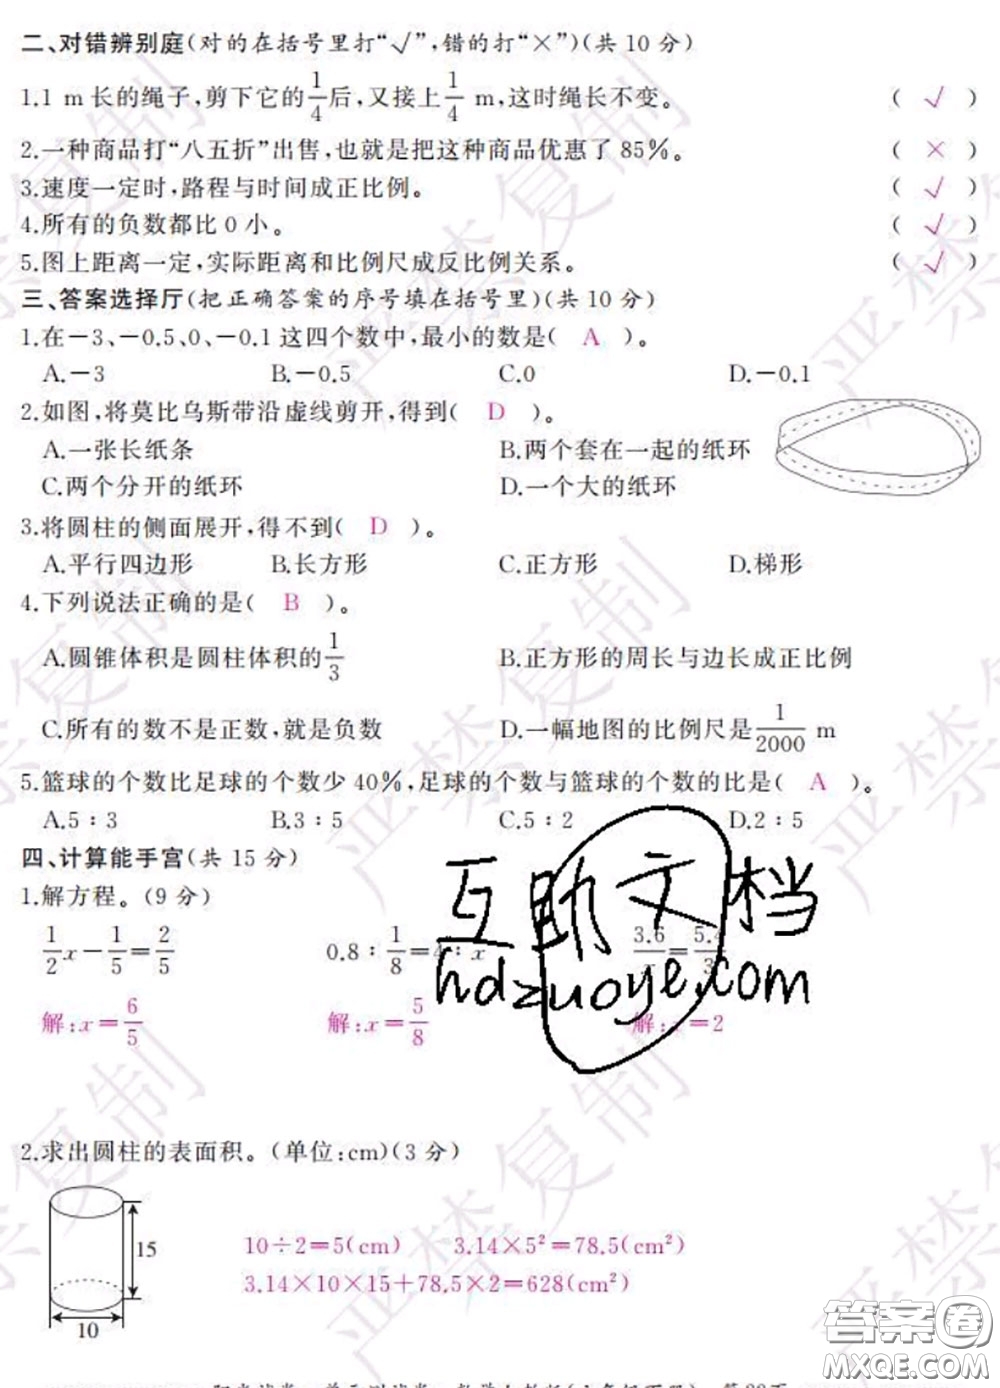 二、对错辨别庭(对的在括号里打“√”,错的打“×”)(共 10 分)
1.1 m 长的绳子,剪下它的1/4后,又接上1/4 m,这时绳长不变。 ( √ )
2.一种商品打“八五折”出售,也就是把这种商品优惠了 85%。 ( × )
3.速度一定时,路程与时间成正比例。 ( √ )
4.所有的负数都比 0 小。 ( √ )
5.图上距离一定,实际距离和比例尺成反比例关系。 ( √ )
三、答案选择厅(把正确答案的序号填在括号里)(共 10 分)
1.在-3、-0.5、0、-0.1 这四个数中,最小的数是( A )。
A.-3 B.-0.5 C.0 D.-0.1
2.如图,将莫比乌斯带沿虚线剪开,得到( D )。
A.一张长纸条 B.两个套在一起的纸环
C.两个分开的纸环 D.一个大的纸环
3.将圆柱的侧面展开,得不到( D )。
A.平行四边形 B.长方形 C.正方形 D.梯形
4.下列说法正确的是( B )。
A.圆锥体积是圆柱体积的1/3 B.正方形的周长与边长成正比例
C.所有的数不是正数,就是负数 D.一幅地图的比例尺是1/2000 m
5.篮球的个数比足球的个数少 40%,足球的个数与篮球的个数的比是( A )。
A.5∶3 B.3∶5 C.5∶2 D.2∶5
四、计算能手宫(共 15 分)
1.解方程。(9 分)
互助文档
hdzuoye.com
1/2x-1/5=2/5 0.8∶1/8=4∶x
解:x=6/5 解:x=5/8 解:x=2
2.求出圆柱的表面积。(单位:cm)(3 分)
15
10
10÷2=5(cm) 3.14×5²=78.5(cm²)
3.14×10×15+78.5×2=628(cm²)
严禁复制
答案圈
MXQE.COM